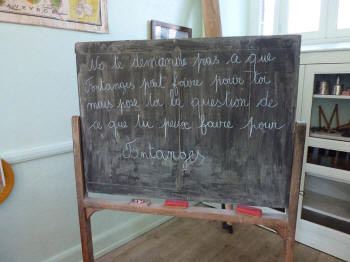 Ne te demande pas ce que
Fontanges peut faire pour toi
mais pose toi la question de
ce que tu peux faire pour
Fontanges